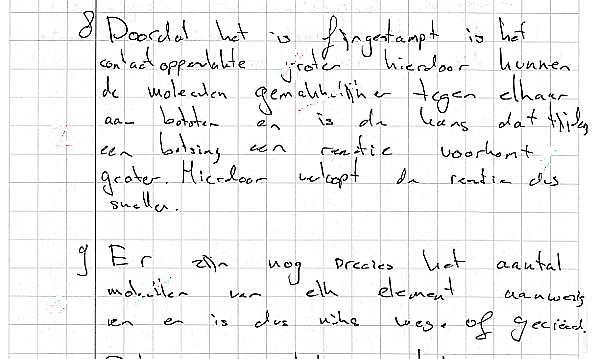 8 Doordat het is fijngestampt is het
contactoppervlakte groter hierdoor kunnen
de moleculen gemakkelijker tegen elkaar
aan botsten en is de kans dat tijdens
een botsing een reactie voorkomt
groter. Hierdoor verloopt de reactie dus
sneller.
9 Er zijn nog precies het aantal
moleculen van elk element aanwezig
en er is dus niks weg of gecreërd.